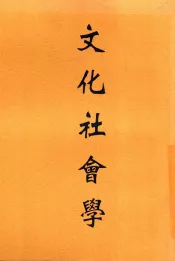 文化社會學